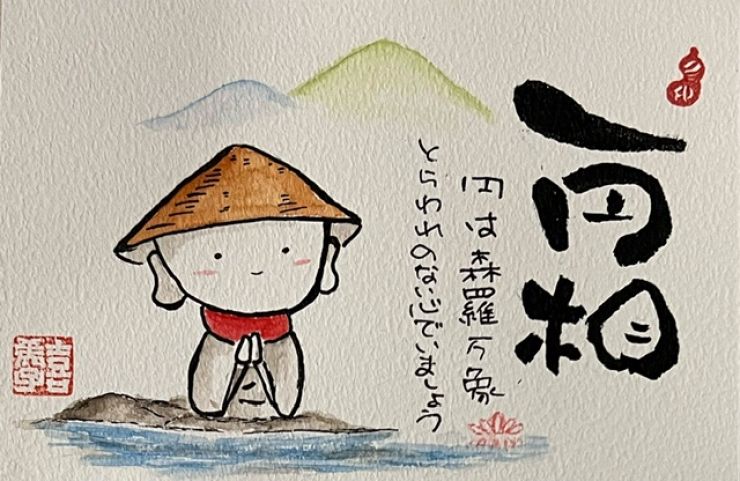 一円相
円は森羅万象
とらわれのない心でいましょう